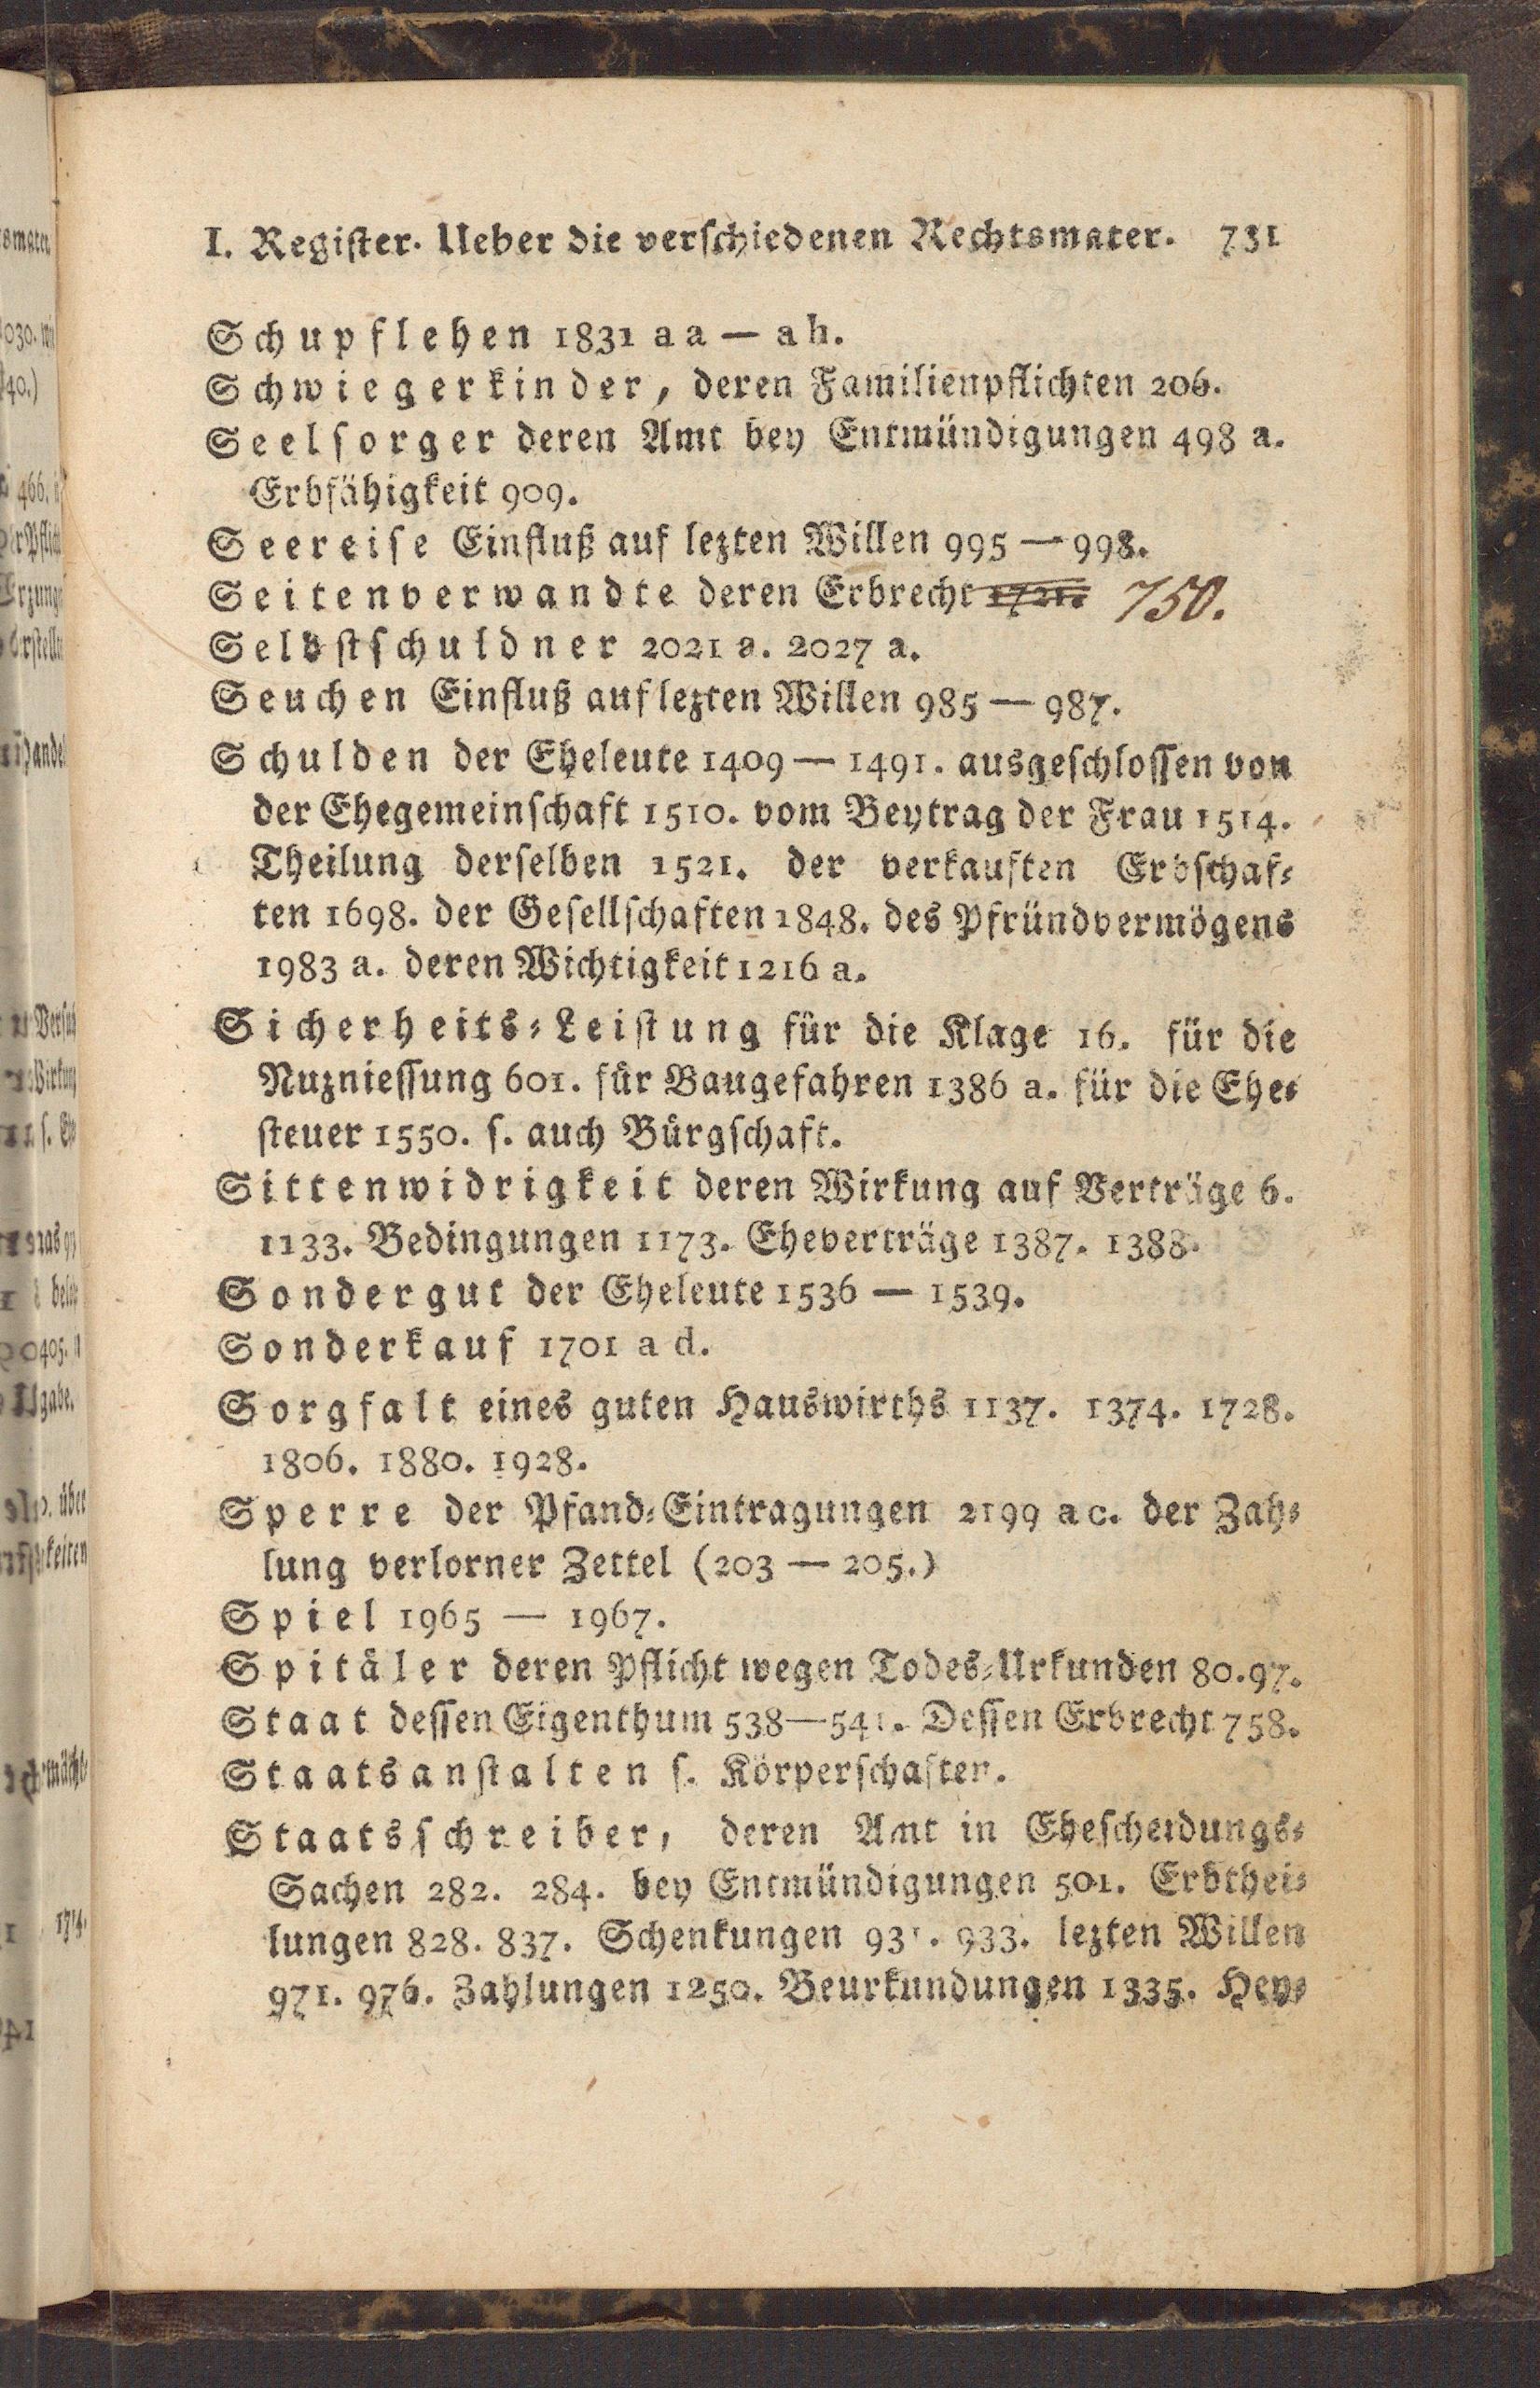 I. Register. Ueber die verschiedenen Rechtsmater. 731
Schupflehen 1831 aa — ah.
Schwiegerkinder, deren Familienpflichten 206.
Seelsorger deren Amt bey Entmündigungen 498 a.
Erbfähigkeit 909.
Seereise Einfluß auf lezten Willen 995 — 998.
Seitenverwandte deren Erbrecht 1721. 750.
Selbstschuldner 2021 a. 2027 a.
Seuchen Einfluß auf lezten Willen 985 — 987.
Schulden der Eheleute 1409 — 1491. ausgeschlossen von
der Ehegemeinschaft 1510. vom Beytrag der Frau 1514.
Theilung derselben 1521. der verkauften Erbschaf-
ten 1698. der Gesellschaften 1848. des Pfründvermögens
1983 a. deren Wichtigkeit 1216 a.
Sicherheits-Leistung für die Klage 16. für die
Nuzniessung 601. für Baugefahren 1386 a. für die Ehe-
steuer 1550. s. auch Bürgschaft.
Sittenwidrigkeit deren Wirkung auf Verträge 6.
1133. Bedingungen 1173. Eheverträge 1387. 1388.
Sondergut der Eheleute 1536 — 1539.
Sonderkauf 1701 a d.
Sorgfalt eines guten Hauswirths 1137. 1374. 1728.
1806. 1880. 1928.
Sperre der Pfand-Eintragungen 2199 ac. der Zah-
lung verlorner Zettel (203 — 205.)
Spiel 1965 — 1967.
Spitäler deren Pflicht wegen Todes-Urkunden 80.97.
Staat dessen Eigenthum 538—541. Dessen Erbrecht 758.
Staatsanstalten s. Körperschaften.
Staatsschreiber, deren Amt in Ehescheidungs-
Sachen 282. 284. bey Entmündigungen 501. Erbthei-
lungen 828. 837. Schenkungen 931. 933. lezten Willen
971. 976. Zahlungen 1250. Beurkundungen 1335. Hey-